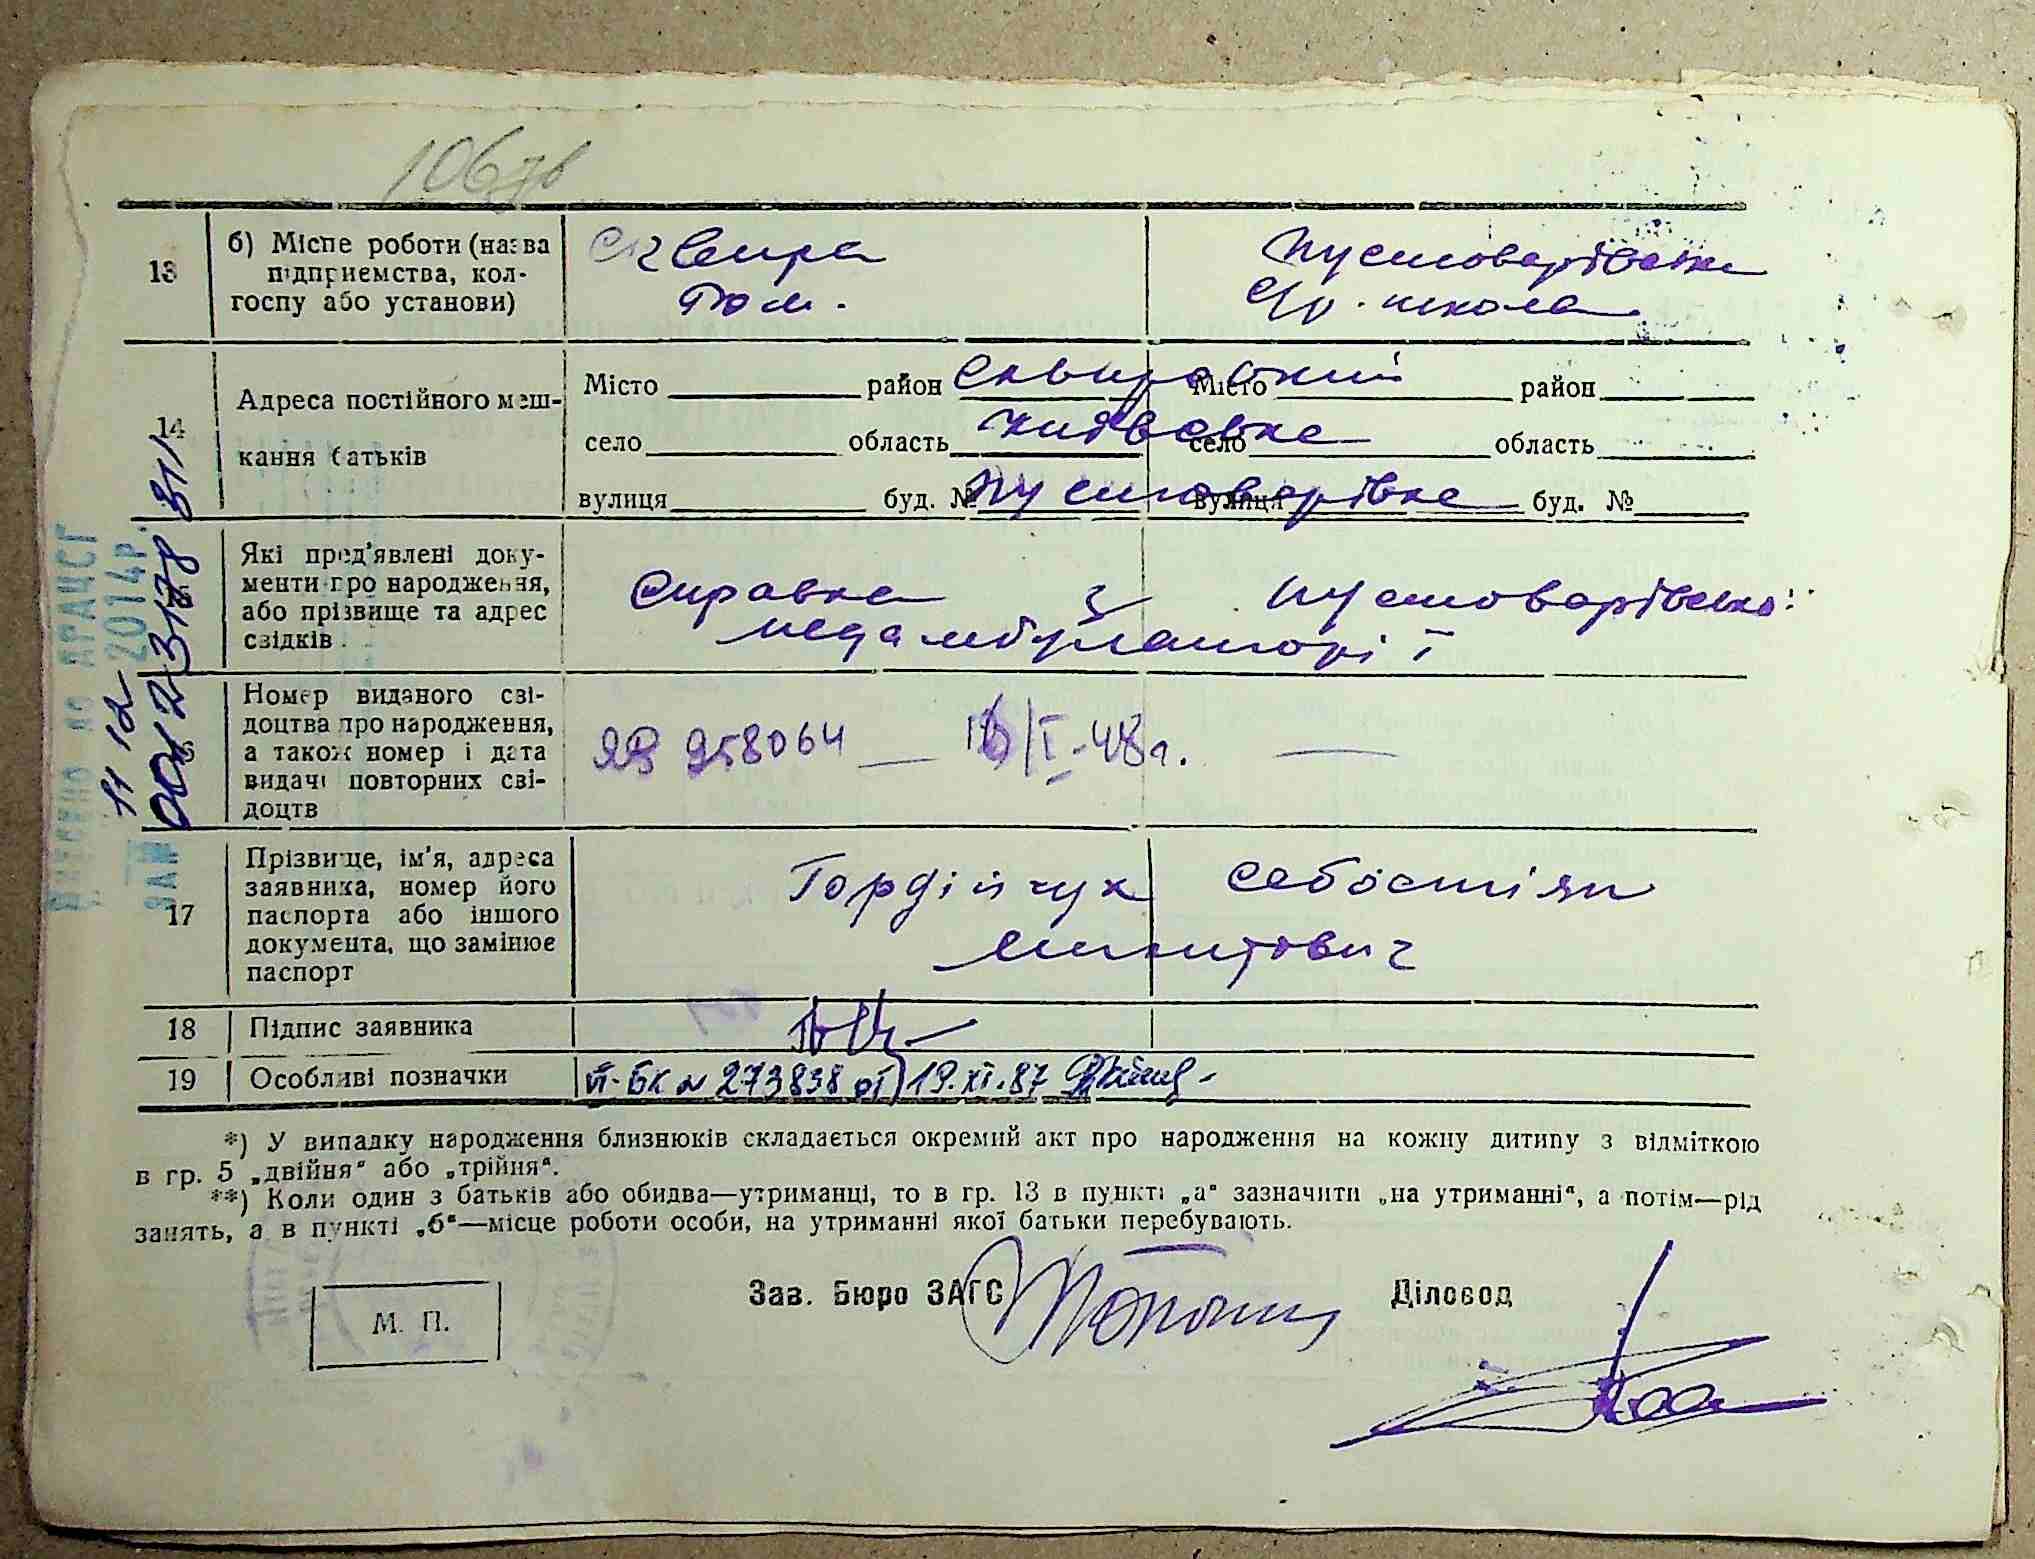 13
б) Місце роботи (назва
підприємства, кол-
госпу або установи)
Сквира
Пустоварівська
ср. школа
14
Адреса постійного меш-
кання батьків
Місто район Сквирський Місто район
село область Київська село область
вулиця буд. № Пустоварівка вулиця буд. №
Які пред'явлені доку-
менти про народження,
або прізвище та адрес
свідків
Справка з Пустоварівської
медамбулаторії
Номер виданого сві-
доцтва про народження,
а також номер і дата
видачі повторних сві-
доцтв
ЯВ 958064 — /I-48г. —
17
Прізвище, ім'я, адреса
заявника, номер його
паспорта або іншого
документа, що замінює
паспорт
Гордійчук Себостіян
Микитович
18
Підпис заявника
19
Особливі позначки
ІІ-БК № 273838 от 19.XI.87
*) У випадку народження близнюків складається окремий акт про народження на кожну дитину з відміткою
в гр. 5 „двійня“ або „трійня“.
**) Коли один з батьків або обидва—утриманці, то в гр. 13 в пункті „а“ зазначити „на утриманні“, а потім—рід
занять, а в пункті „б“—місце роботи особи, на утриманні якої батьки перебувають.
М. П.
Зав. Бюро ЗАГС
Діловод
Внесено до ДРАЦСГ
11 12 2014р.
ЗА № 00123178 311